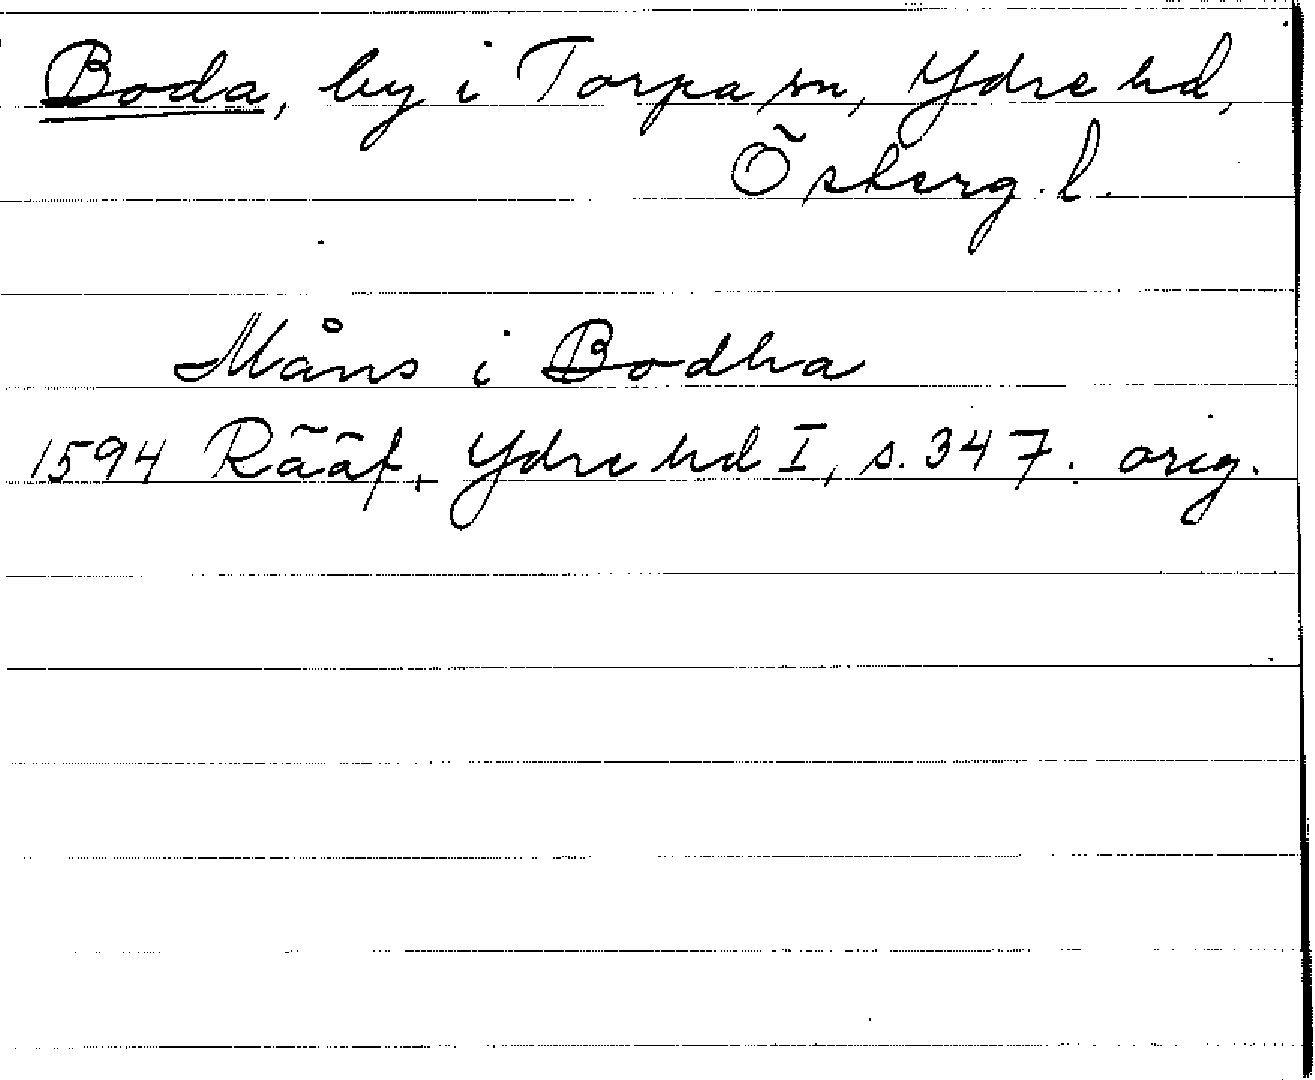 Boda, by i Torpa sn, Ydre hd,
Östergr. l.
Måns i Bodha
1594 Rääf, Ydre hd I, s. 347. orig.